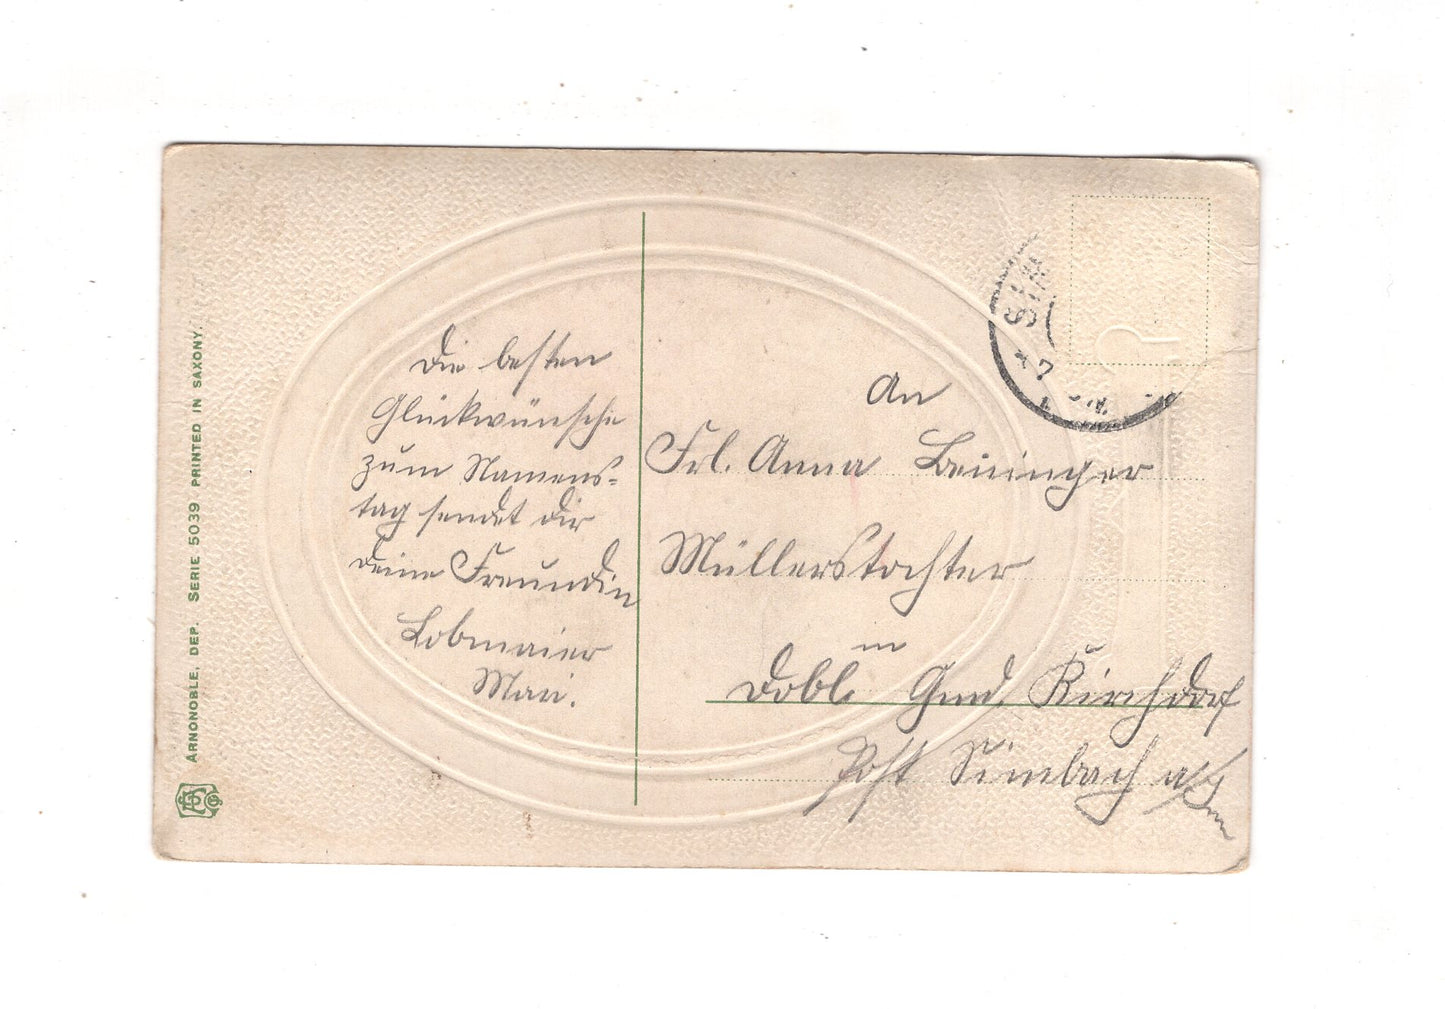 Die besten
Glückwünsche
zum Namens-
tag sendet dir
deine Freundin
Lobmaier
Mari.
An
Frl. Anna
Müllerstochter
in
Dobl Gmd. Kirchdorf
Post Simbach a/Inn
ARNONOBLE, DEP. SERIE 5039 PRINTED IN SAXONY.